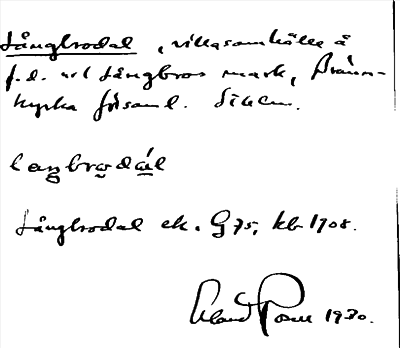 Långbrodal, villasamhälle å
f.d. utj Långbros mark, Brännkyrka församl. Sthlm.
laŋbro̬dá̱l
Långbrodal ek. G75, kb 1908.
1930.